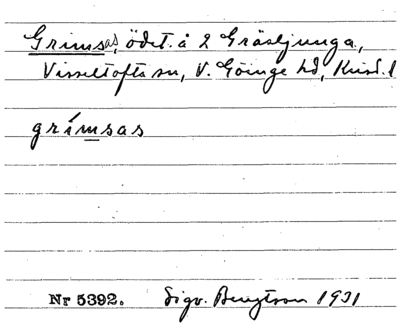 Grimsas, ödet. å 2 Gräsljunga,
Visseltofta sn, V. Göinge hd, Krisd. l
grímsas
Nr 5392. Sigv. Bengtson 1931